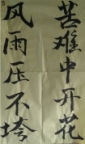 风雨压不垮
苦难中开花